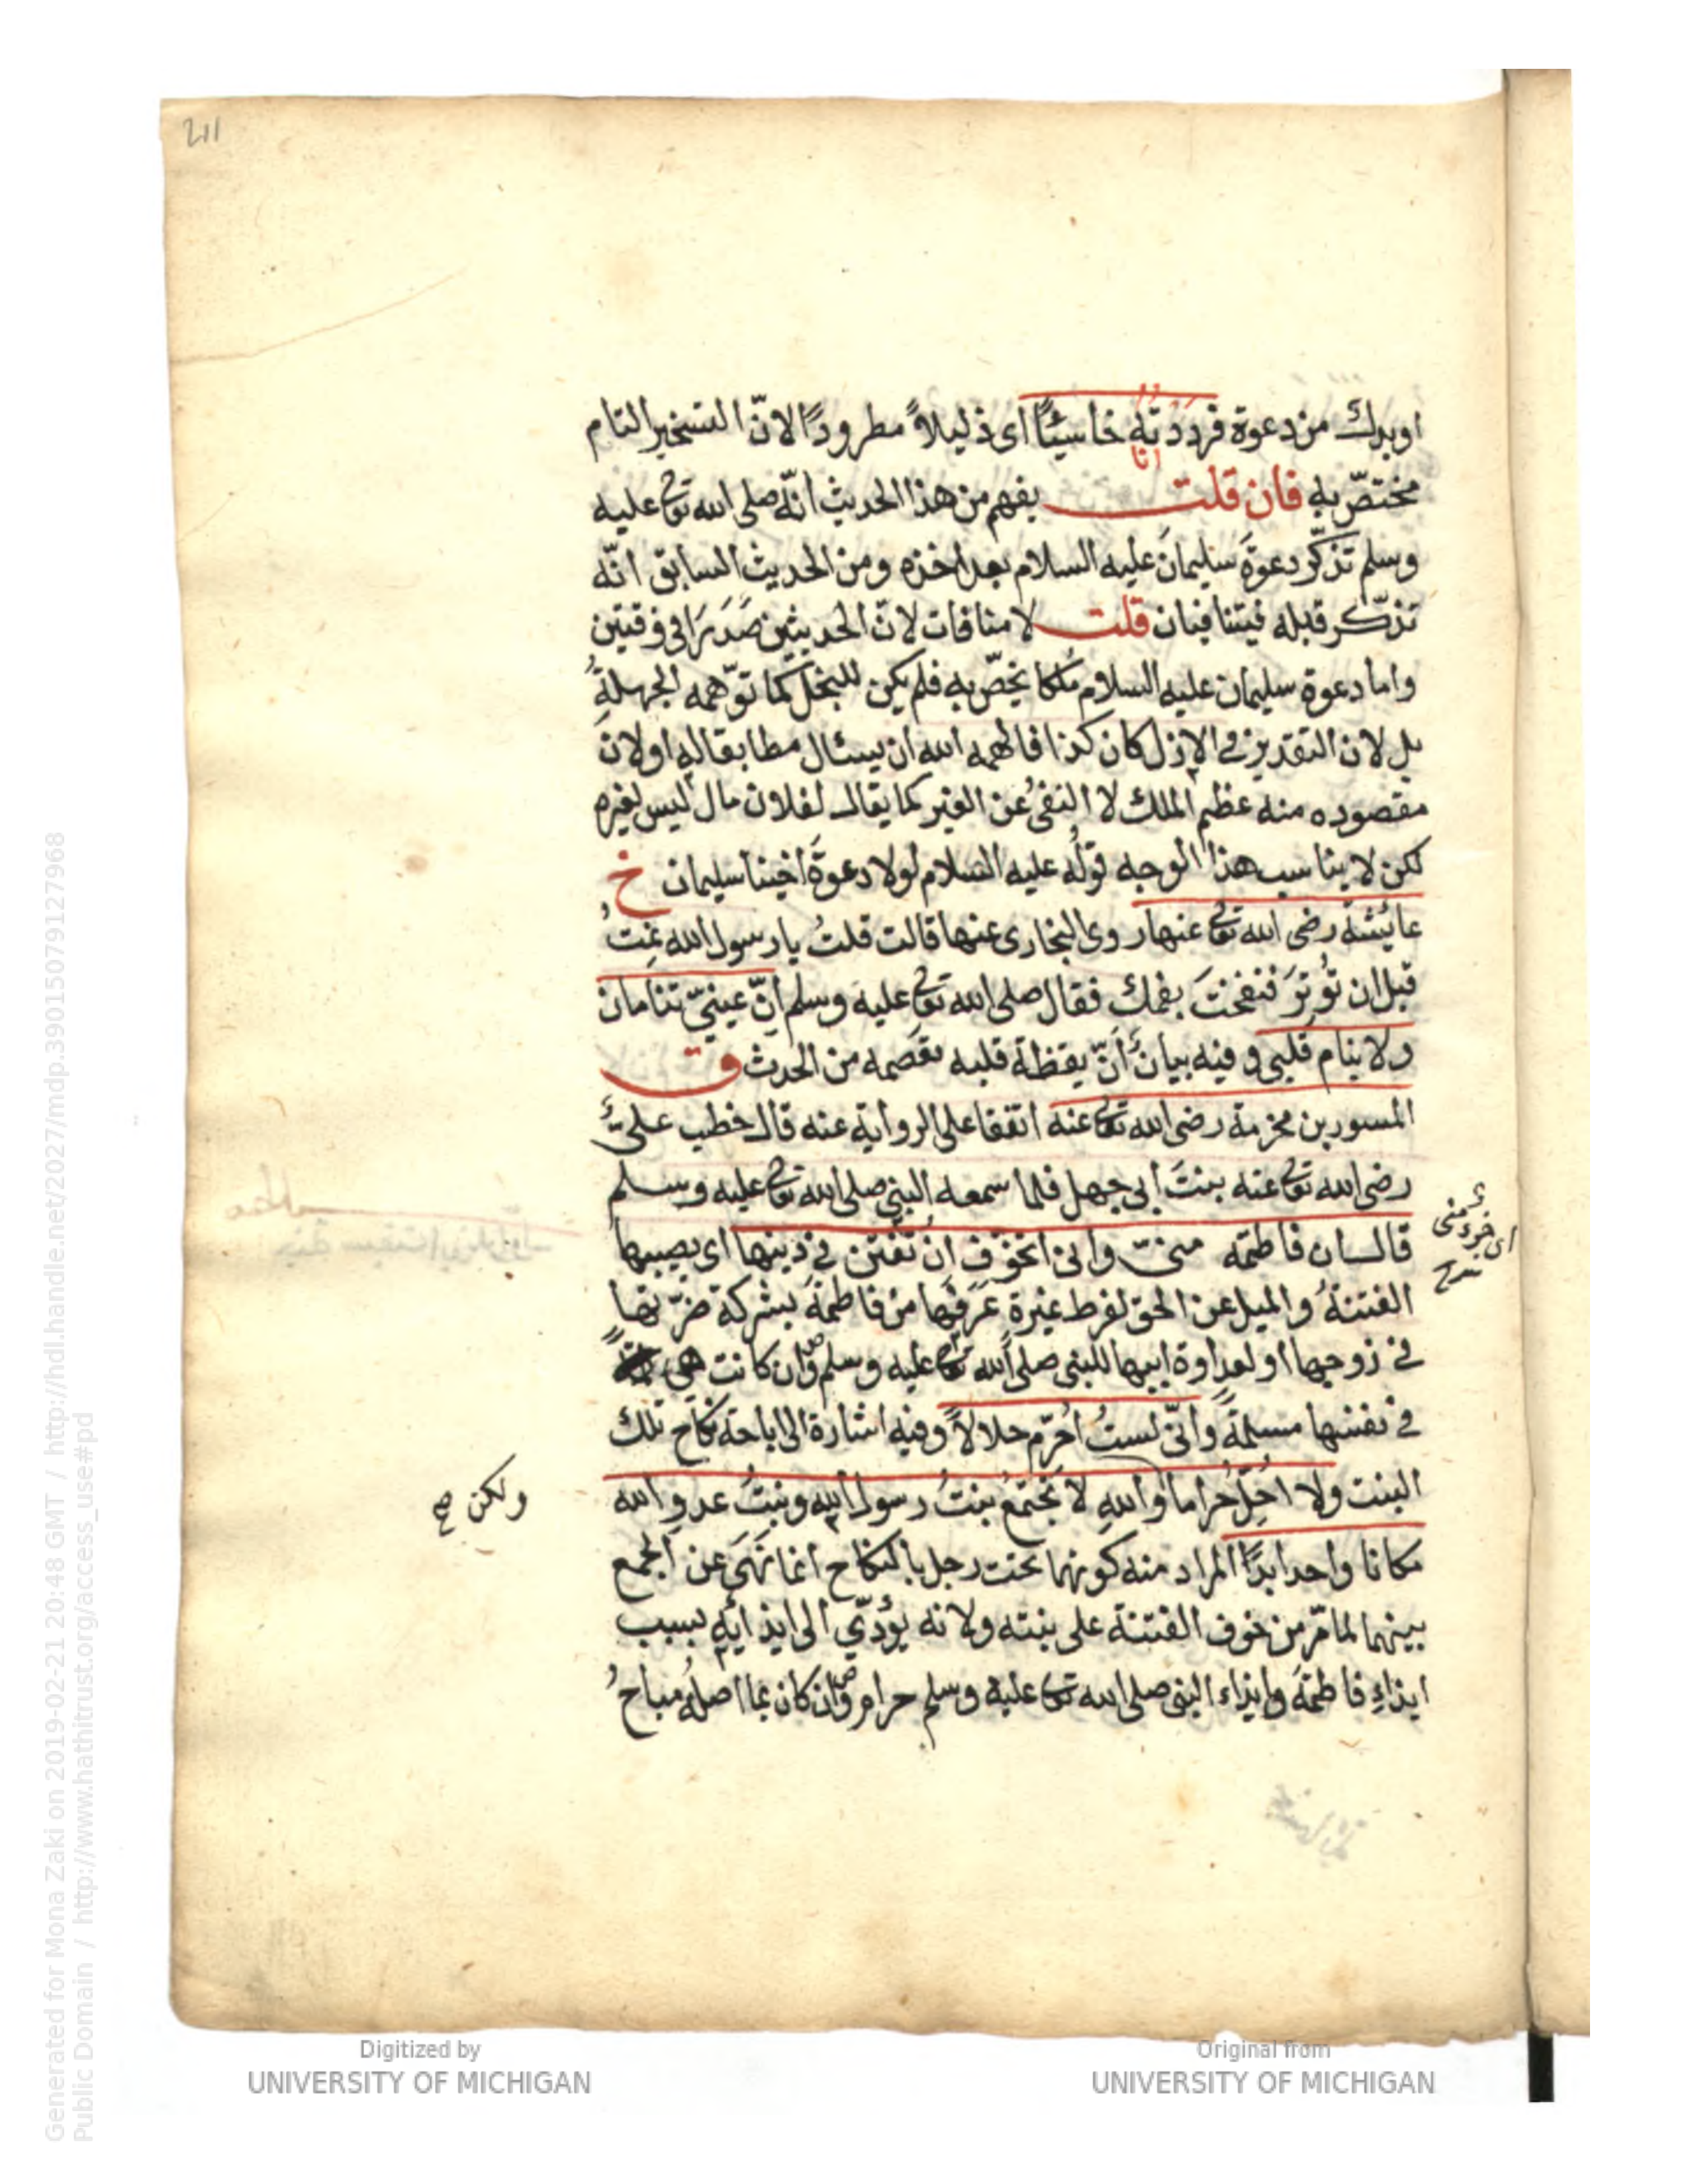 211
او بدل من دعوة فرددته خاسئًا اى ذليلاً مطرودًا لانّ التسخير التام
انا
مختصّ به فان قلت يفهم من هذا الحديث انّه صلى الله تعالى عليه
وسلم تذكّر دعوةَ سليمانَ عليه السلام بعد اخذه ومن الحديث السابق انّه
تذكّر قبله فيتنافيان قلت لا منافات لانّ الحديثين صَدَرَا فى وقتين
واما دعوة سليمان عليه السلام مُلكا يخصّ به فلم يكن للبخل كما توّهمه الجهلةُ
بل لان التقدير فى الازل كان كذا فالهمه الله ان يسئال مطابقا له او لانّ
مقصوده منه عظم الملك لا النفىُ عن الغير كما يقال لفلان مال ليس لغيره
لكن لا يناسب هذا الوجه قولُه عليه السلام لولا دعوةَ اخينا سليمان خ
عائشة رضى الله تعالى عنها روى البخارى عنها قالت قلتُ يا رسول الله نمتَ
قبل ان تُوتِرَ فنفختَ بفمك فقال صلى الله تعالى عليه وسلم انّ عينىّ تنامان
ولا ينام قلبى وفيه بيانُ أنّ يقظة قلبه تعصمه من الحدث ق
المسور بن مخرمة رضى الله تعالى عنه اتفقا على الرواية عنه قال خطب علىّ
رضى الله تعالى عنه بنتَ ابى جهل فلما سمعه النبى صلى الله تعالى عليه وسلم
قال ان فاطمة منّى وانى اتخوّف ان تفتن فى دينها اى يصيبها
اى جزء منى
شرح
الفتنةُ والميل عن الحق لفرط غيرة عَرَفَها من فاطمةَ بشركة ضرّتها
فى زوجها او لعداوة ابيها للنبى صلى الله تعالى عليه وسلم وان كانت هى
فى نفسها مسلمةً وانّى لستُ احُرّم حلالاً وفيه اشارة الى اباحة نكاح تلك
البنت ولا احُِلّ حراما والله لا تجتمعُ بنتُ رسول الله وبنتُ عدو الله
ولكن صح
مكانا واحدا ابدًا المراد منه كونهما تحت رجل بالنكاح انما نَهَى عن الجمع
بينهما لما مّر من خوف الفتنة على بنته ولانه يؤدّى الى ايذائِه بسبب
ايذاءِ فاطمةَ وايذاء النبى صلى الله تعالى عليه وسلم حرام وان كان بما اصله مباحُ
Generated for Mona Zaki on 2019-02-21 20:48 GMT / http://hdl.handle.net/2027/mdp.39015079127968
Public Domain / http://www.hathitrust.org/access_use#pd
Digitized by
UNIVERSITY OF MICHIGAN
Original from
UNIVERSITY OF MICHIGAN